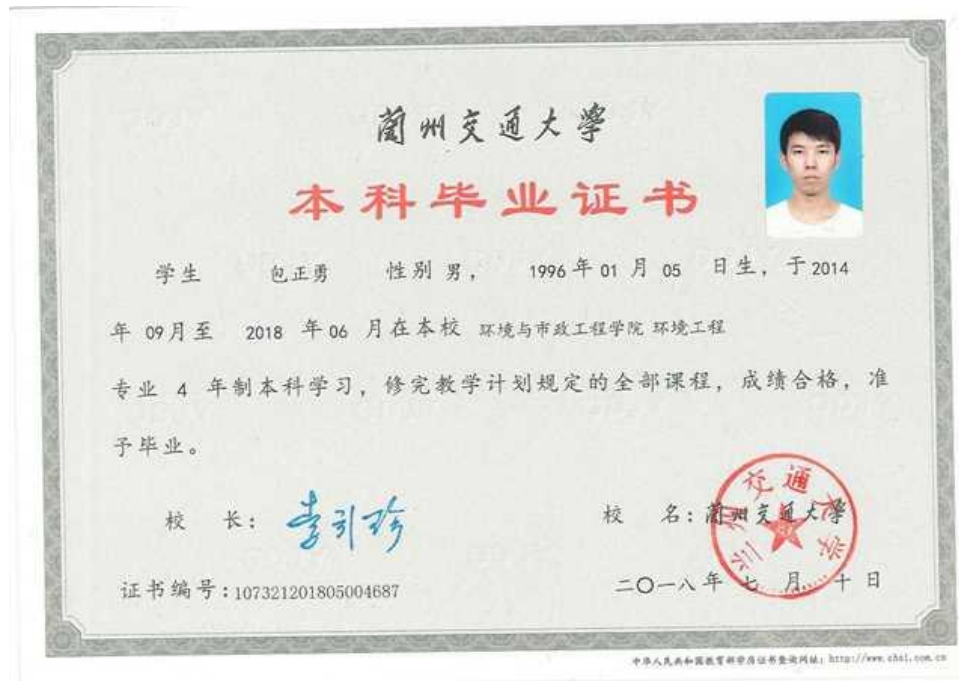 蘭州交通大學
本科毕业证书
学生 包正勇 性别 男， 1996 年 01 月 05 日生，于 2014
年 09 月至 2018 年 06 月在本校 环境与市政工程学院 环境工程
专业 4 年制本科学习，修完教学计划规定的全部课程，成绩合格，准
予毕业。
校 长： 李引珍
校 名：蘭州交通大學
兰州交通大学
证书编号：107321201805004687
二〇一八年 七 月 十 日
中华人民共和国教育部学历证书查询网址：http://www.chsi.com.cn